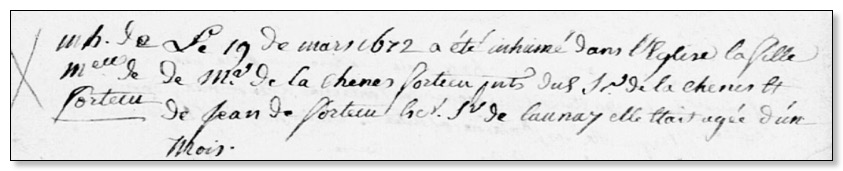 inh. de Le 19 de mars 1672 a été inhumé dans l'Eglise la fille
melle de de Mr de la chenes forteu pnts dud Sr de la chenes et
forteu de Jean de forteu Sr de launay elle etait agée d'un
mois.